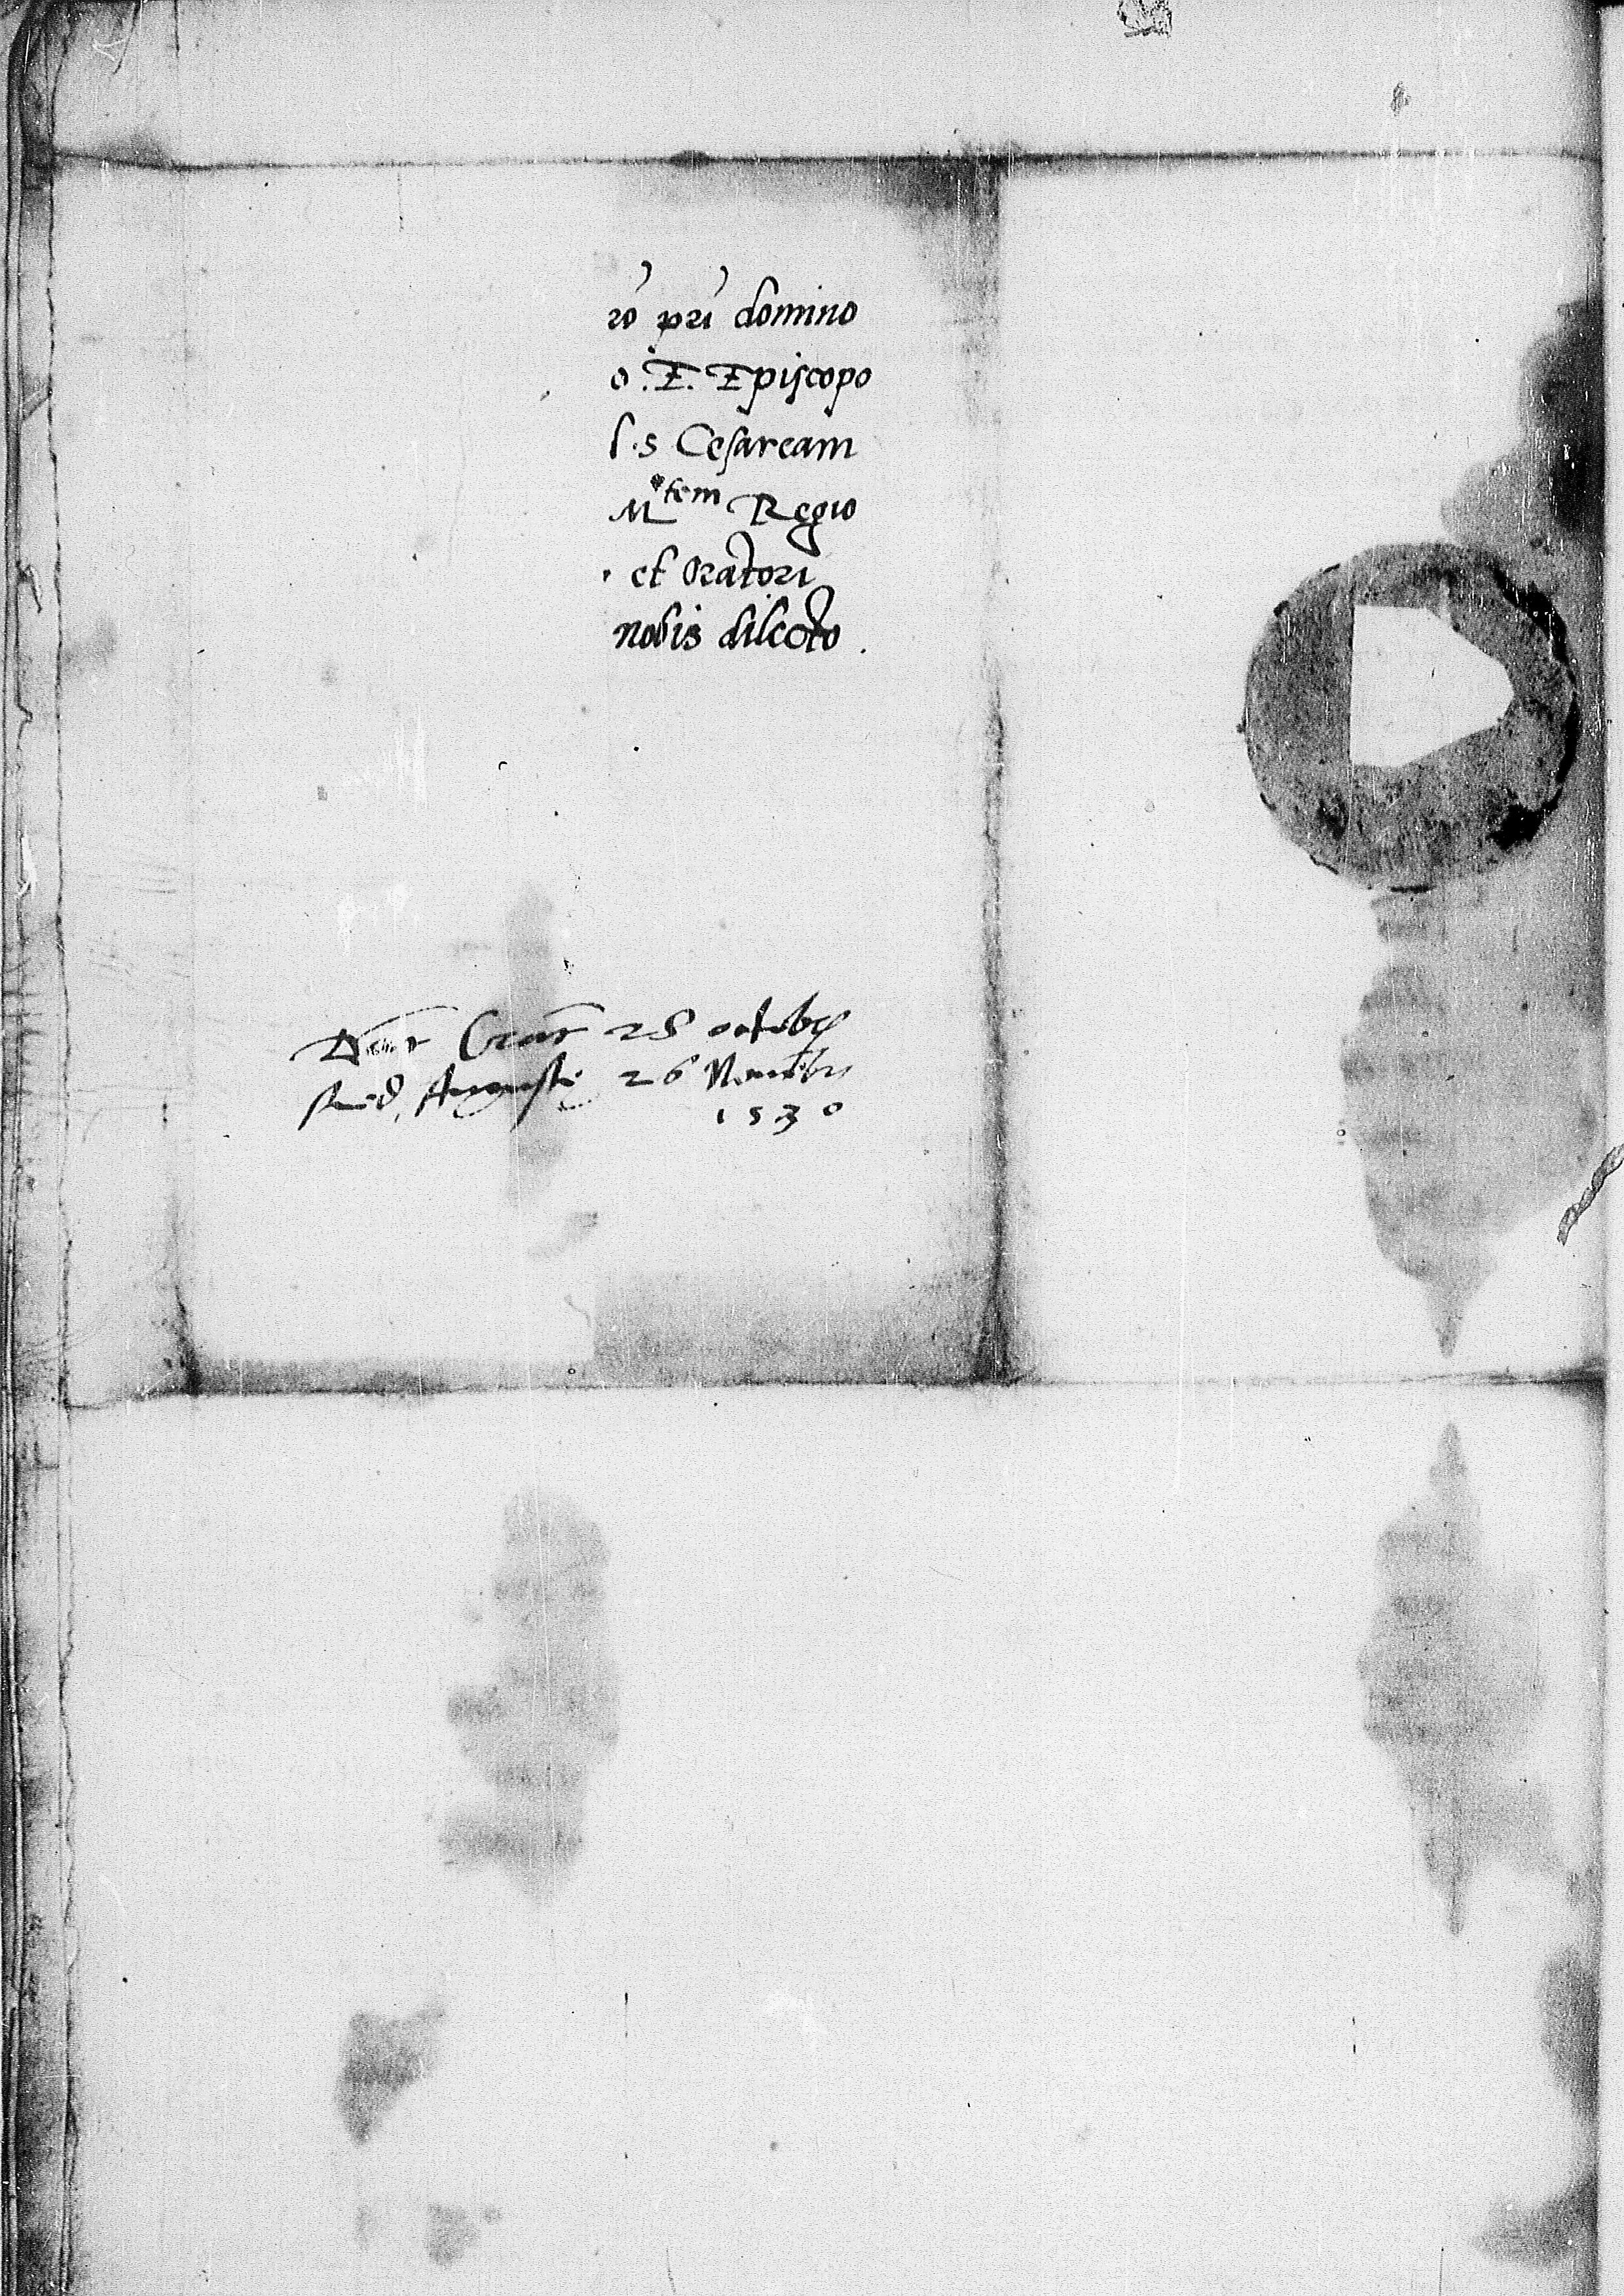 ro pri domino
o .E. Episcopo
l.s Cesaream
Mtem Regio
et Oratori
nobis dilecto.
Dat Crac 28 octobris
Auguste 26 Novembris
1530